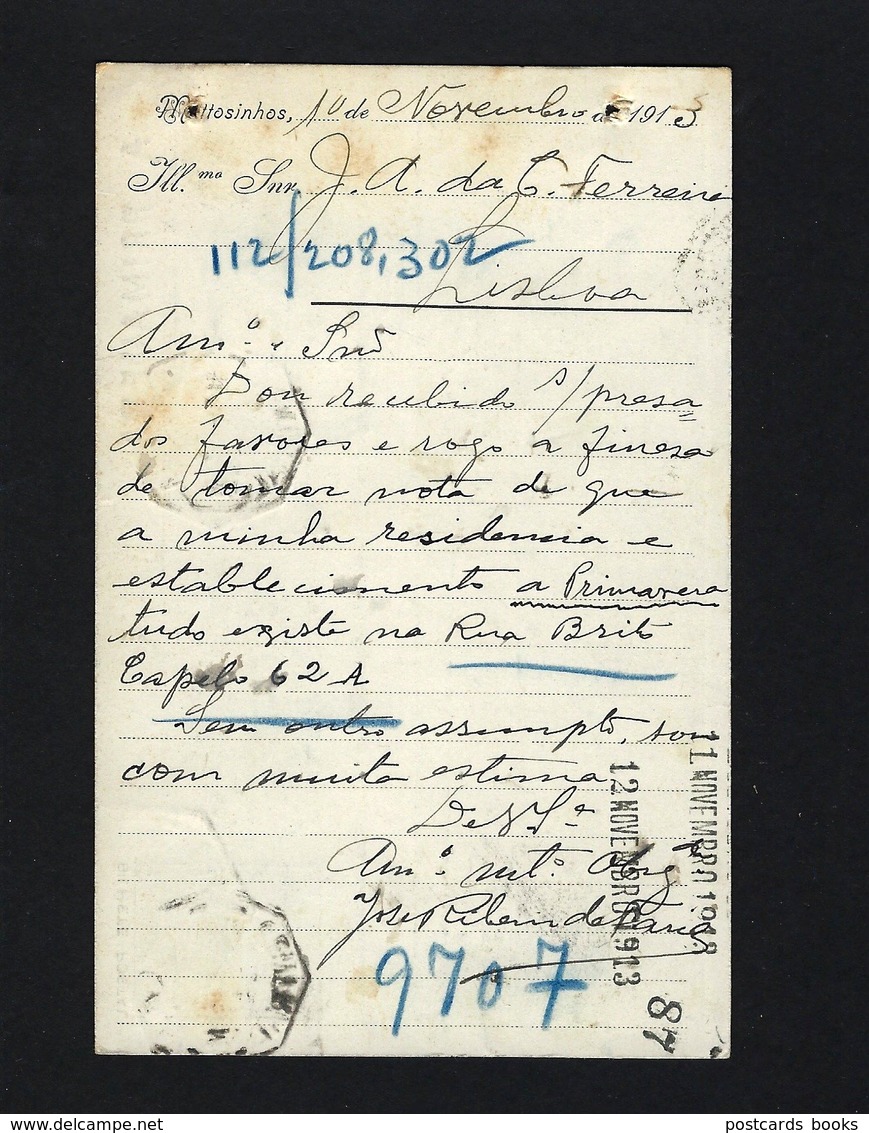 Mattosinhos, 10 de Novembro de 1913
Ill.mo Snr. J. A. da C. Ferreira
112/208,302
Lisboa
Am.º e Snr
Dou recebido s/ presa=
dos favores e rogo a finesa
de tomar nota de que
a minha residencia e
estabelecimento a Primavera
tudo existe na Rua Brito
Capelo 62 A
Sem outro assumpto, sou
com muita estima
De V. S.ª
Am.º mt.º Obg.
José Ribeiro de Faria
9707
11 NOVEMBRO 1913
12 NOVEMBRO 1913
87
postcards books
www.delcampe.net